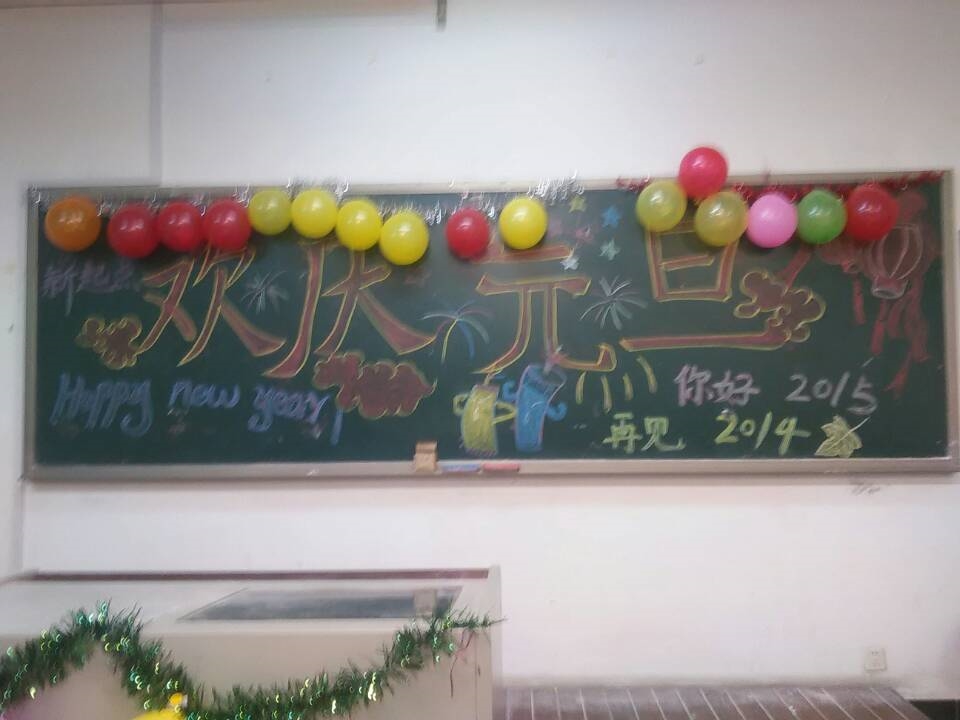 新起点
欢庆元旦
Happy new year!
你好 2015
再见 2014